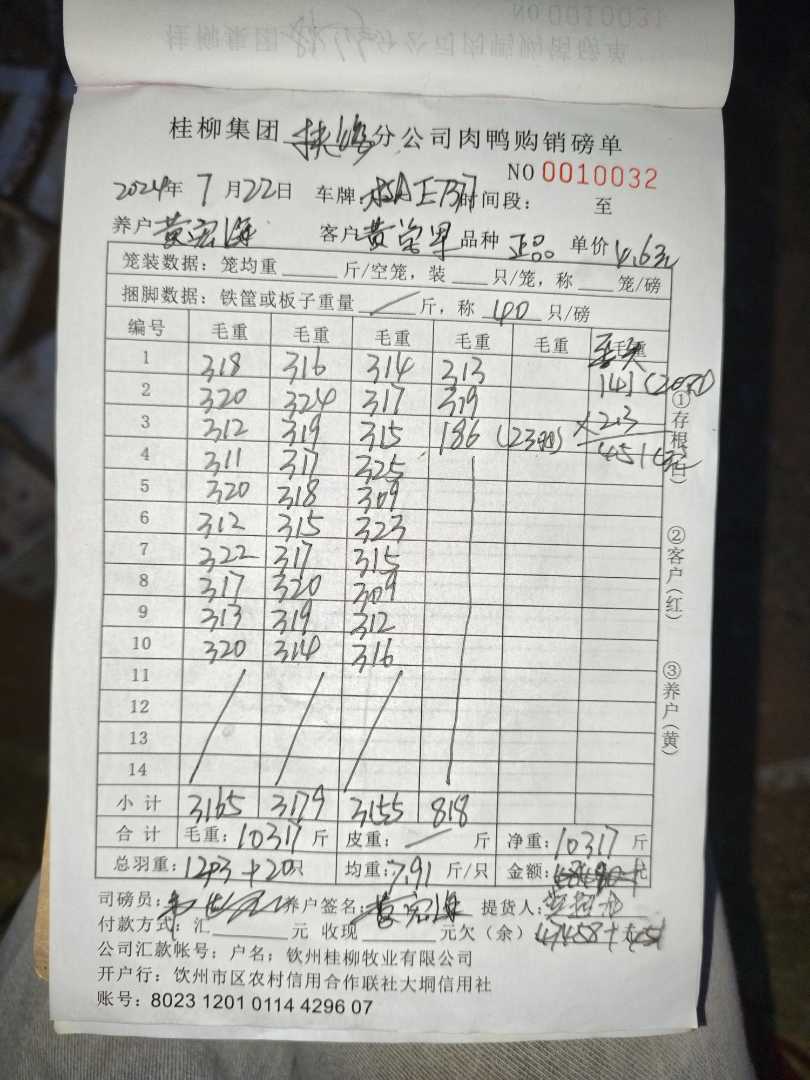 NO 0010031
桂柳集团 扶绥 分公司肉鸭购销磅单
NO 0010032
2024年 7 月 22 日 车牌: 时间段: 至
养户 黄宏海 客户 黄 品种 正品 单价 4.6元
笼装数据: 笼均重 ____ 斤/空笼, 装 ____ 只/笼, 称 ____ 笼/磅
捆脚数据: 铁筐或板子重量 / 斤, 称 40 只/磅
编号 毛重 毛重 毛重 毛重 毛重 毛重
1 318 316 314 313
2 320 324 317 319 141
3 312 319 315 186 (23只)
4 311 317 325 451
5 320 318 309
6 312 315 323
7 322 317 315
8 317 320 309
9 313 319 312
10 320 314 316
11
12
13
14
小计 3165 3179 3155 818
合计 毛重: 10317 斤 皮重: / 斤 净重: 10317 斤
总羽重: 1303+20只 均重: 7.91 斤/只 金额: 元
司磅员: 养户签名: 黄宏海 提货人:
付款方式: 汇____元 收现____元欠(余) 47458+451
公司汇款帐号: 户名; 钦州桂柳牧业有限公司
开户行: 钦州市区农村信用合作联社大垌信用社
账号: 8023 1201 0114 4296 07
①存根(白)
②客户(红)
③养户(黄)